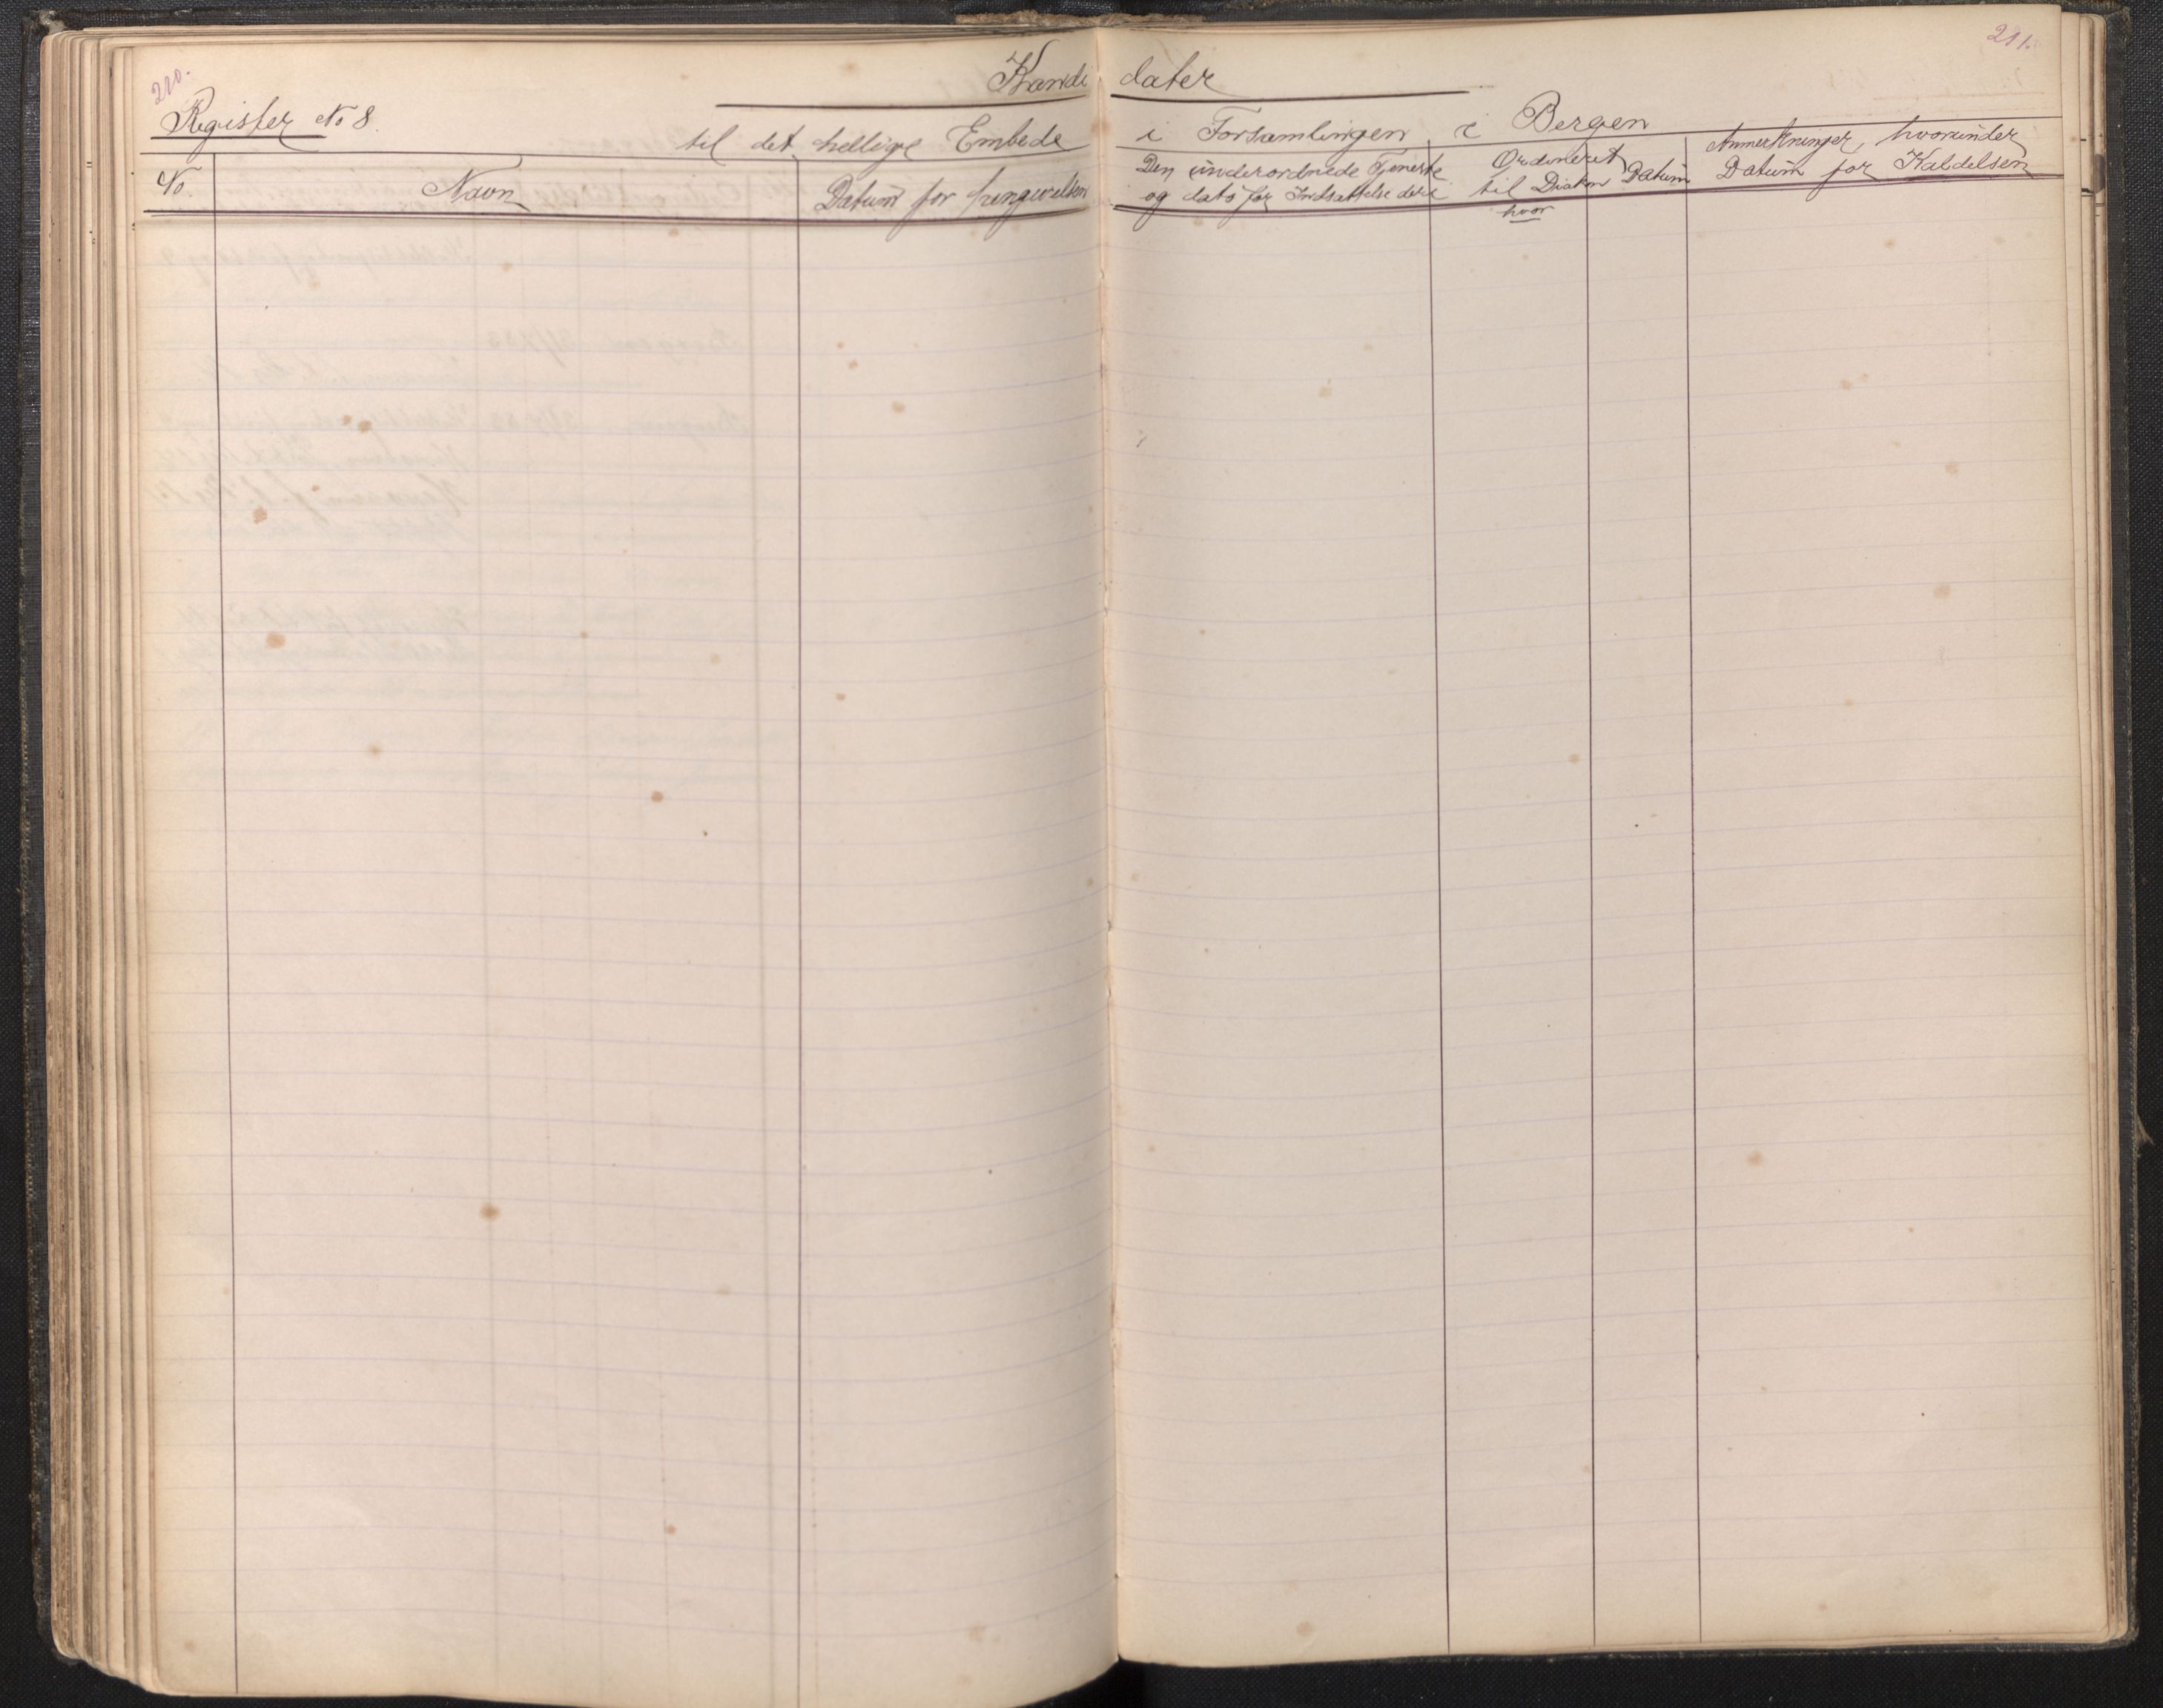 210.
211.
Kandi dater
Register No 8.
til det hellige Embede i Forsamlingen i Bergen
No.
Navn
Datum for hengivelsen
Den underordnede Tjeneste
og dato for Indsættelse deri
Ordineret
til Diakon
hvor
Datum
Anmerkninger, hvorunder
Datum for Kaldelsen